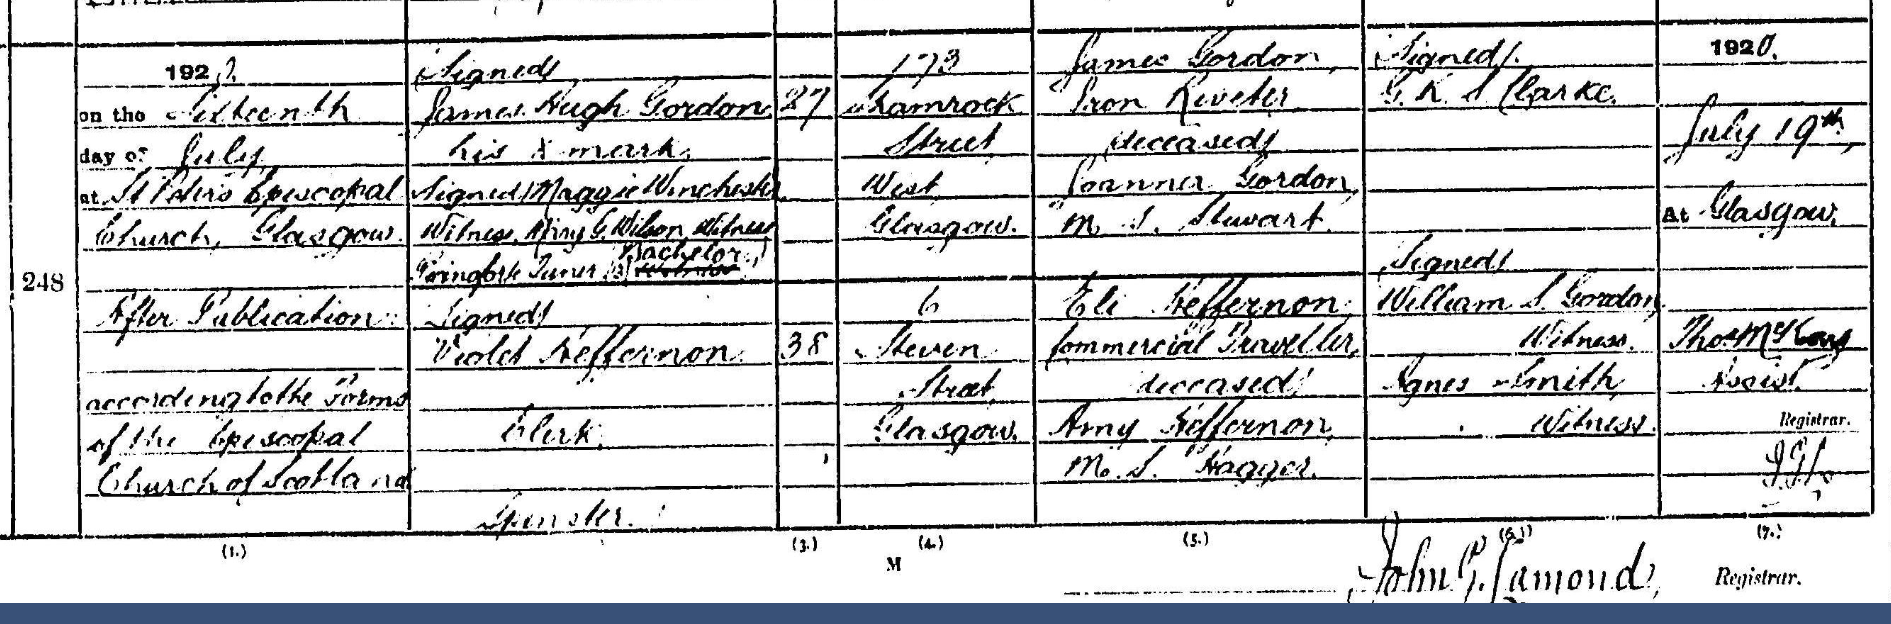 248
1920.
on the Fifteenth
day of July,
at St Peter's Episcopal
Church, Glasgow.
After Publication
according to the Forms
of the Episcopal
Church of Scotland
(Signed)
James Hugh Gordon
his X mark.
(Signed) Maggie Winchester
Witness. Amy G. Wilson Witness
Tuner
Bachelor
(Signed)
Violet Heffernon.
Clerk.
Spinster.
27
38
173
Shamrock
Street
West
Glasgow.
6
Steven
Street,
Glasgow.
James Gordon,
Iron Riveter
(deceased)
Joanner Gordon,
M. S. Stewart.
Eli Heffernon,
Commercial Traveller,
(deceased)
Amy Heffernon,
M. S. Hagger.
(Signed).
G. K. S. Clarke.
(Signed)
William S. Gordon,
Witness.
Agnes Smith,
Witness.
1920.
July 19th,
At Glasgow.
Assist.
Registrar.
(1.)
(3.)
(4.)
(5.)
(6.)
(7.)
M
John G. Lamond,
Registrar.